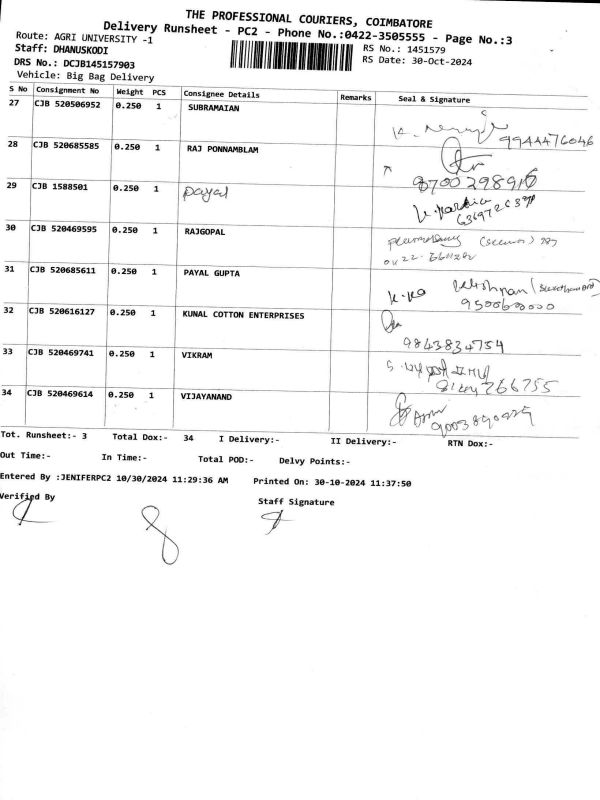 THE PROFESSIONAL COURIERS, COIMBATORE
Delivery Runsheet - PC2 - Phone No.:0422-3505555 - Page No.:3
Route: AGRI UNIVERSITY -1
RS No.: 1451579
Staff: DHANUSKODI
RS Date: 30-Oct-2024
DRS No.: DCJB145157903
Vehicle: Big Bag Delivery
S No Consignment No Weight PCS Consignee Details Remarks Seal & Signature
27 CJB 520506952 0.250 1 SUBRAMAIAN
9944476046
28 CJB 520685585 0.250 1 RAJ PONNAMBLAM
29 CJB 1588501 0.250 1 payal
30 CJB 520469595 0.250 1 RAJGOPAL
31 CJB 520685611 0.250 1 PAYAL GUPTA
32 CJB 520616127 0.250 1 KUNAL COTTON ENTERPRISES
9843834754
33 CJB 520469741 0.250 1 VIKRAM
34 CJB 520469614 0.250 1 VIJAYANAND
Tot. Runsheet:- 3 Total Dox:- 34 I Delivery:- II Delivery:- RTN Dox:-
Out Time:- In Time:- Total POD:- Delvy Points:-
Entered By :JENIFERPC2 10/30/2024 11:29:36 AM Printed On: 30-10-2024 11:37:50
Verified By Staff Signature